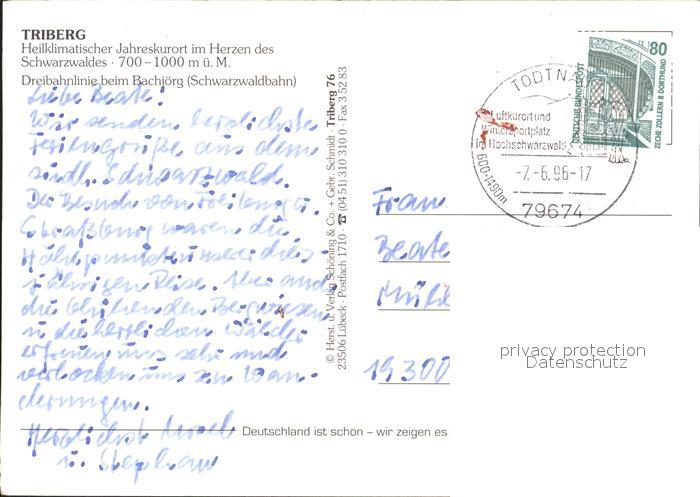 TRIBERG
Heilklimatischer Jahreskurort im Herzen des
Schwarzwaldes · 700–1000 m ü. M.
Dreibahnlinie beim Bachjörg (Schwarzwaldbahn)
Liebe Beate!
Wir senden herzlichste
Feriengrüße aus dem
südl. Schwarzwald.
Der Besuch von Freiburg u.
Straßburg waren die
Höhepunkte unserer dies-
jährigen Reise. Aber auch
die blühenden Bergwiesen
u. die herrlichen Wälder
erfreuen uns sehr und
verlocken uns zu Wan-
derungen.
Herzlichst
u. Stephan
© Herst. u. Verlag Schöning & Co. + Gebr. Schmidt · Triberg 76
23506 Lübeck · Postfach 1710 · ☎ (04 51) 310 310 0 · Fax 3 52 83
Deutschland ist schön – wir zeigen es
TODTNA
Luftkurort und
Wintersportplatz
im Hochschwarzwald
600-1490m
-7.-6.96-17
79674
80
DEUTSCHE BUNDESPOST
ZECHE ZOLLERN II DORTMUND
Frau
Beate
Mühl
19300
privacy protection
Datenschutz